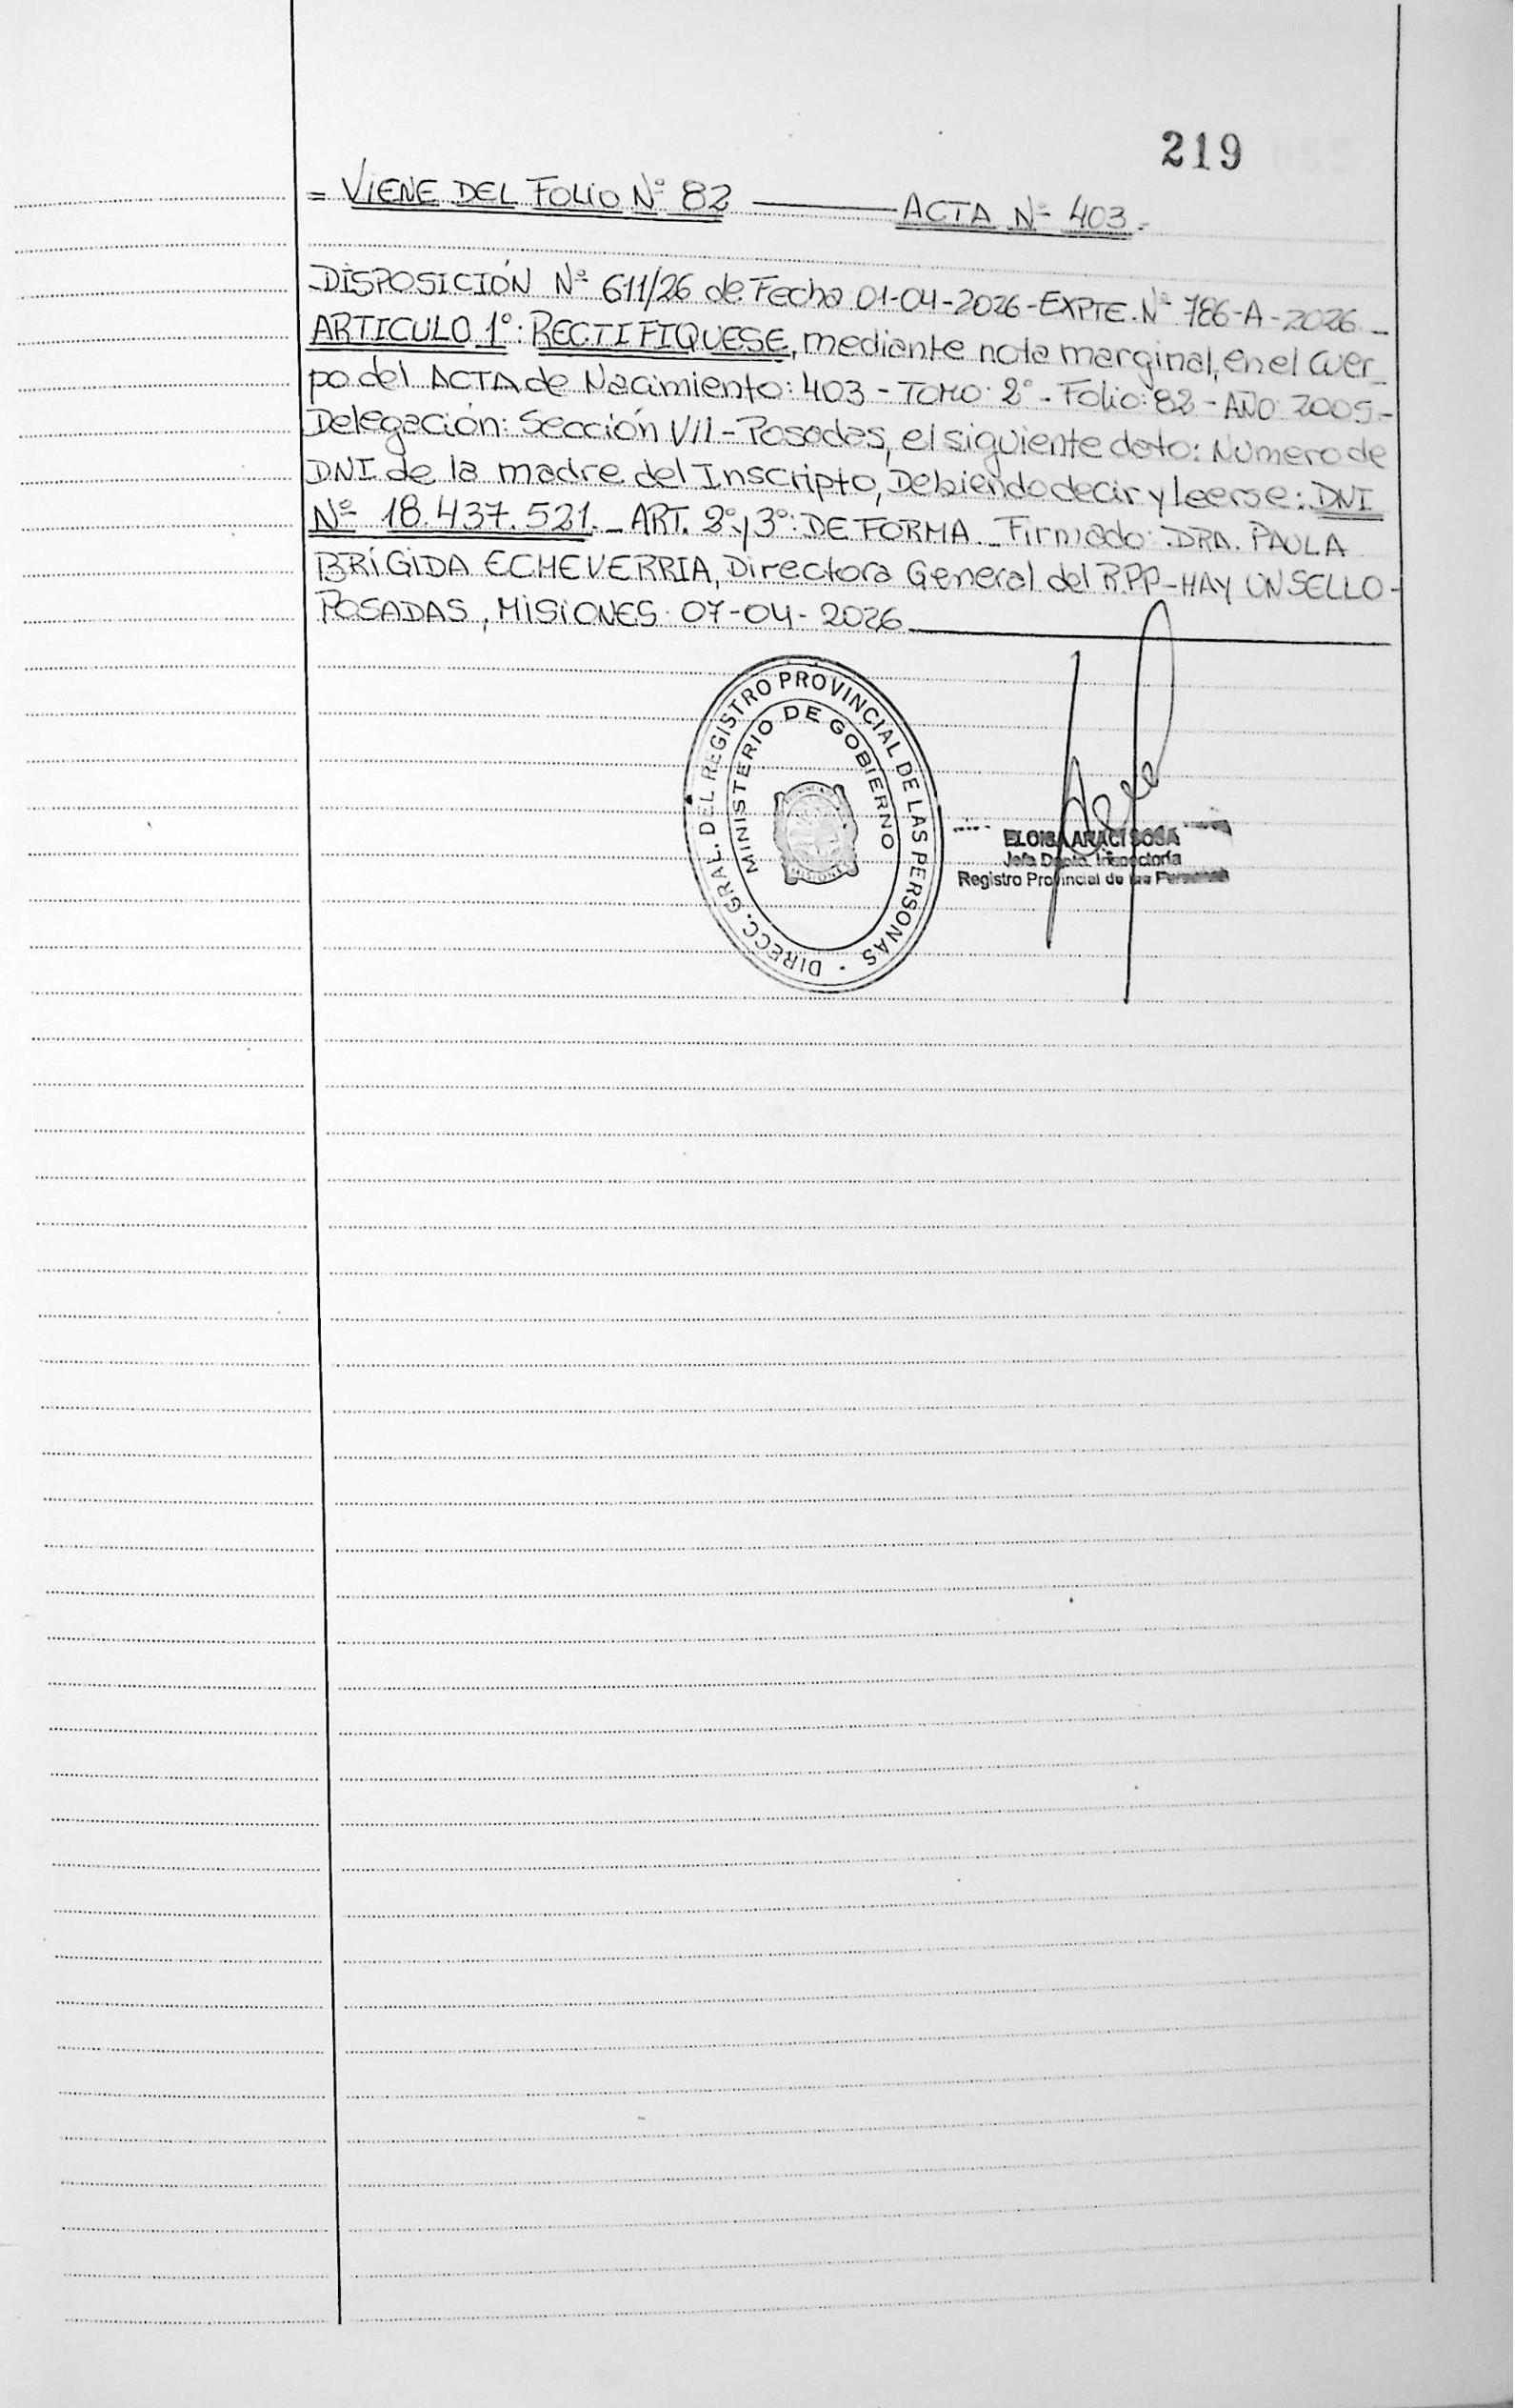 219
= VIENE DEL FOLIO Nº 82 ——— ACTA Nº 403.-
DISPOSICIÓN Nº 611/26 de Fecha 01-04-2026-EXPTE. Nº 786-A-2026_
ARTICULO 1º: RECTIFIQUESE, mediante nota marginal, en el cuer_
po del ACTA de Nacimiento: 403 - TOMO: 2º - Folio: 82 - AÑO: 2005.-
Delegación: Sección VII - Posadas, el siguiente dato: Número de
DNI de la madre del Inscripto, Debiendo decir y Leerse: DNI
Nº 18.437.521._ ART. 2º y 3º: DE FORMA_ Firmado: DRA. PAULA
BRÍGIDA ECHEVERRIA, Directora General del R.P.P - HAY UN SELLO -
POSADAS, MISIONES: 07-04-2026
DIRECC. GRAL. DEL REGISTRO PROVINCIAL DE LAS PERSONAS ·
MINISTERIO DE GOBIERNO
MISIONES
ELOISA ARACI SOSA
Jefa Dpto. Inspectoría
Registro Provincial de las Personas